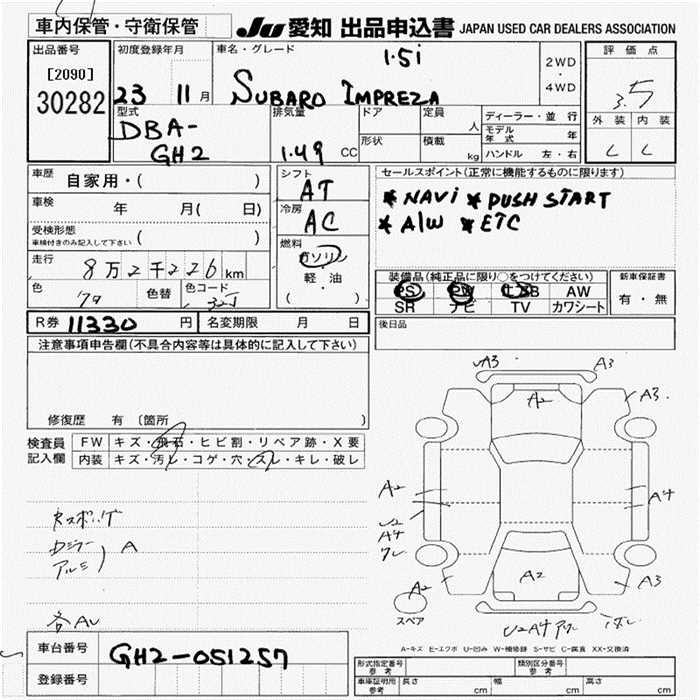 車内保管・守衛保管 JU 愛知 出品申込書 JAPAN USED CAR DEALERS ASSOCIATION
出品番号 初度登録年月 車名・グレード 1.5i 2WD・4WD 評価点
[2090]
30282 23 11月 SUBARO IMPREZA 3.5
型式 排気量 ドア 定員 人 ディーラー・並行 外装 内装
DBA- モデル年式 年
GH2 1.49 CC 形状 積載 kg ハンドル 左・右 C C
車歴 自家用・( ) シフト AT セールスポイント(正常に機能するものに限ります)
車検 年 月( 日) 冷房 AC * NAVi * PUSH START
受検形態 ( ) * A/W * ETC
車検付きのみ記入して下さい
燃料 ガソリン
走行 8万2千226km 軽・油
装備品(純正品に限り○をつけてください) 新車保証書
色 色替 色コード ( ) PS PW エアB AW 有・無
SR ナビ TV カワシート
R券 11330 円 名変期限 月 日 後日品
注意事項申告欄(不具合内容等は具体的に記入して下さい)
修復歴 有 〔箇所 〕
検査員記入欄 FW キズ・飛石・ヒビ割・リペア跡・X要
内装 キズ・汚レ・コゲ・穴・スレ・キレ・破レ
A3 A3
A2 A3
A2 A4
U2
A4
A
アルミ
A2 A2 A3
スペア
U2A4
A-キズ E-エクボ U-凹み W-補修跡 S-サビ C-腐食 XX-交換済
車台番号 GH2-051257
登録番号
形式指定番号 参考 類別区分番号 参考
車庫証明用 参考 長さ cm 幅 cm 高さ cm